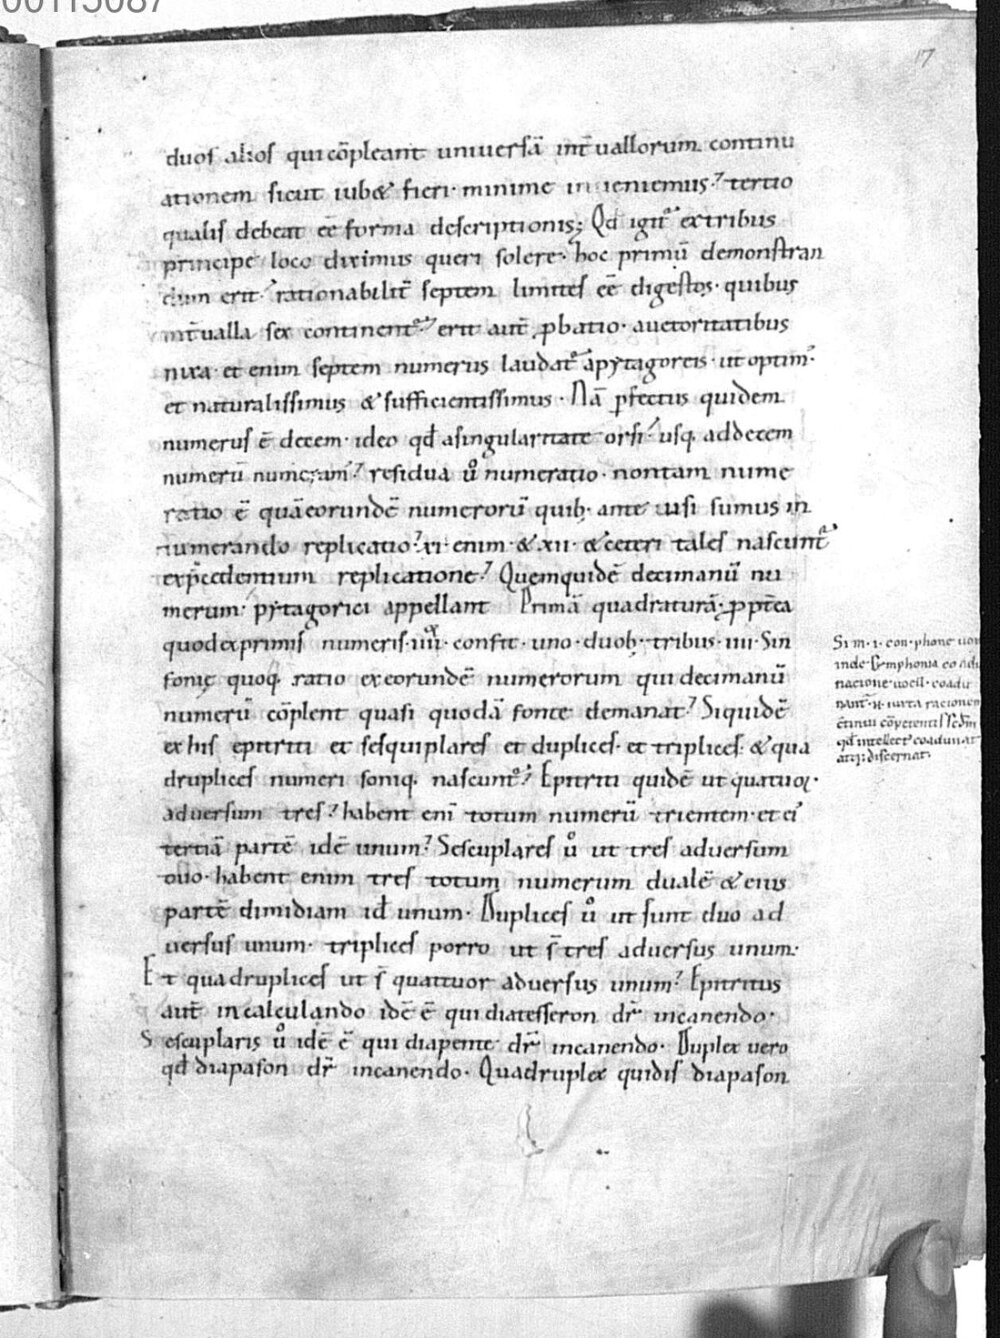 00115087
17
duos alios qui cõpleant uniuersã int̄uallorum continu
ationem sicut iub& fieri· minime inueniemus· tertio
qualis debeat eē forma descriptionis; Qd igit᷒ ex tribus
principe loco diximus queri solere· hoc primū demonstran
dum erit· rationabilit̄ septem limites eē digestos· quibus
int̄ualla sex continent᷒ erit aut̄ ꝓbatio· auctoritatibus
nixa· et enim septem numerus laudat᷒ apytagoreis· ut optim᷒·
et naturalissimus & sufficientissimus· Nā ꝑfectus quidem
numerus ē decem· ideo qđ asingularitate orsi· usq. addecem
numerū numeram᷒· residua ů numeratio· nontam nume
ratio ē quãeorundē numerorū quib; ante usi sumus in
numerando replicatio· xi· enim· & xii· & ceteri tales nascunt᷒
exp̄cedentium replicatione· Quemquidē decimanū nu
merum· pytagorici appellant Primā quadraturā· ꝓpt̄ea
quodexprimis numeris· iiii· confit· uno· duob; tribus· iiii· Sin
fonię quoq. ratio exeorundē numerorum qui decimanū
numerū cōplent quasi quodā fonte demanat· Siquidē
ex his epitriti et sesquiplares et duplices· et triplices· & qua
druplices numeri soniq. nascunt᷒· Epitriti quidē ut quatuor·
aduersum tres· habent eni totum numerū trientem· et ei᷒
tertiā partē idē unum· Sescuplares ů ut tres aduersum
duo· habent enim tres totum numerum dualē & eius
partē dimidiam iđ unum· Duplices ů ut sunt duo ad
uersus unum· triplices porro ut s̄ tres aduersus unum·
Et quadruplices ut s̄ quattuor aduersus unum· Epitritus
aut̄ incalculando idē ē qui diatesseron dr̄ incanendo·
Sescuplaris ů idē ē qui diapente dr̄ incanendo· Duplex uero
qđ diapason dr̄ incanendo· Quadruplex quidis diapason
Sim· i· con· phone uox
inde Symphonia eo ad
nacione uocū· coadu
nant̄ iuxta racionem
cōpetentis
qđ intellect᷒ coadunat
discernat